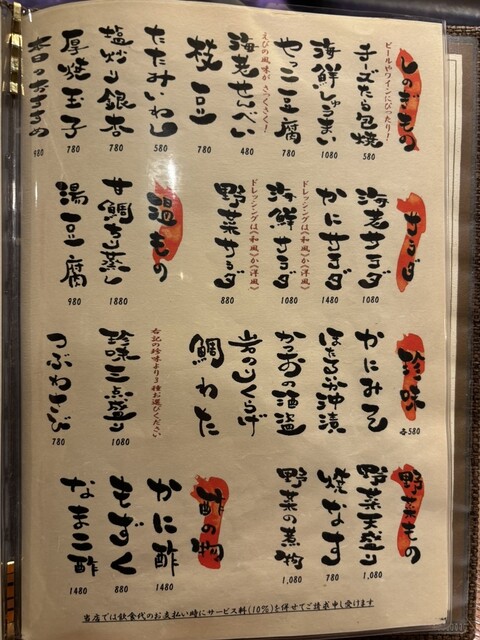 しのぎもの
ビールやワインにぴったり!
チーズたら包焼
580
海鮮しゅうまい
1080
やっこ豆腐
780
えびの風味がさくさく!
海老せんべい
480
枝豆
780
たたみいわし
580
塩炒り銀杏
780
厚焼玉子
780
本日のおすすめ
980
サラダ
海老サラダ
1080
かにサラダ
1480
ドレッシングは《和風》か《洋風》
海鮮サラダ
1080
ドレッシングは《和風》か《洋風》
野菜サラダ
880
温もの
甘鯛ちり蒸し
1880
湯豆腐
980
珍味
各580
かにみそ
ほたるいか沖漬
かつおの酒盗
岩のりくらげ
鯛わた
右記の珍味より3種お選びください
珍味三点盛り
1080
つぶわさび
780
野菜もの
野菜天盛り
1,080
焼なす
780
野菜の煮物
1,080
酢の物
かに酢
1480
もずく
880
なまこ酢
1480
当店では飲食代のお支払い時にサービス料(10%)を併せてご請求申し受けます